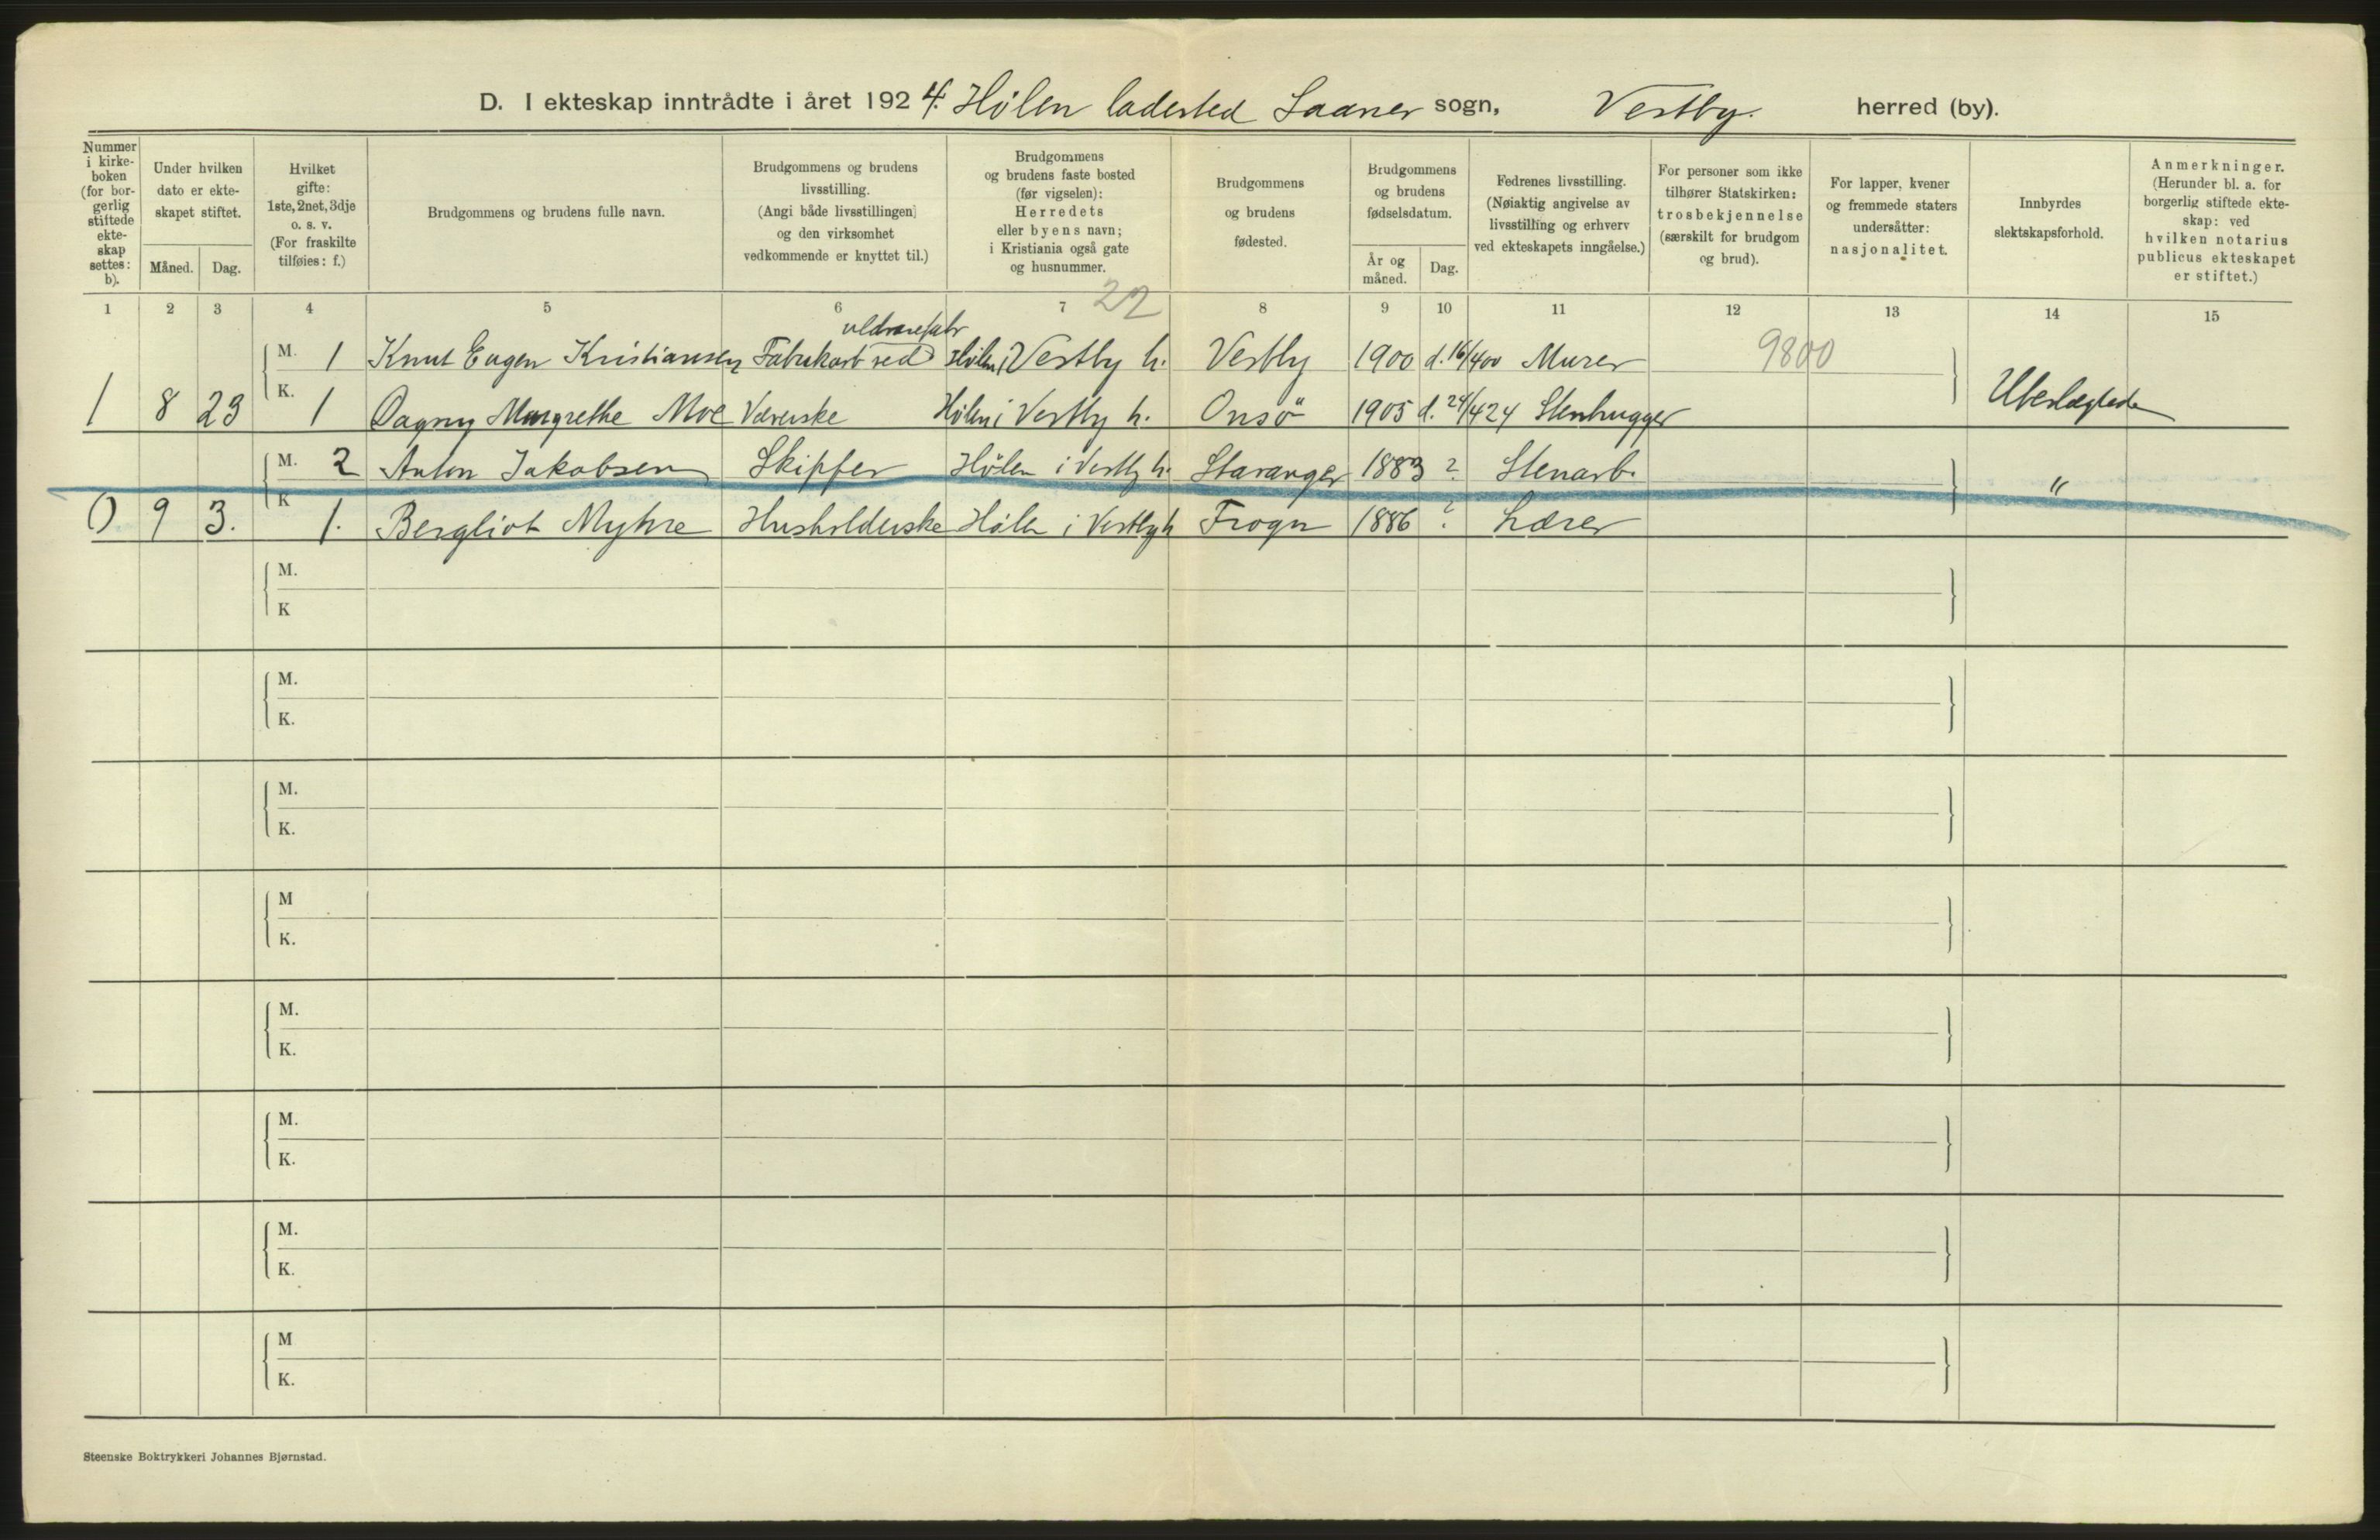 D. I ekteskap inntrådte i året 1924. Hølen ladested Saaner sogn, Vestby. herred (by).
Nummer i kirke-boken (for bor-gerlig stiftede ekte-skap settes: b).
Under hvilken dato er ekte-skapet stiftet.
Måned. Dag.
Hvilket gifte: 1ste, 2net, 3dje o. s. v. (For fraskilte tilføies: f.)
Brudgommens og brudens fulle navn.
Brudgommens og brudens livsstilling. (Angi både livsstillingen og den virksomhet vedkommende er knyttet til.)
Brudgommens og brudens faste bosted (før vigselen): Herredets eller byens navn; i Kristiania også gate og husnummer.
Brudgommens og brudens fødested.
Brudgommens og brudens fødselsdatum.
År og måned. Dag.
Fedrenes livsstilling. (Nøiaktig angivelse av livsstilling og erhverv ved ekteskapets inngåelse.)
For personer som ikke tilhører Statskirken: trosbekjennelse (særskilt for brudgom og brud).
For lapper, kvener og fremmede staters undersåtter: nasjonalitet.
Innbyrdes slektskapsforhold.
Anmerkninger. (Herunder bl. a. for borgerlig stiftede ekte-skap: ved hvilken notarius publicus ekteskapet er stiftet.)
22
1 2 3 4 5 6 7 8 9 10 11 12 13 14 15
uldvarefabr
M. 1 Knut Eugen Kristiansen Fabrikarb ved Hölen i Vestby h. Vestby 1900 d. 16/4 00 Murer 9800
1 8 23 K. 1 Dagny Margrethe Moe Væverske Hölen i Vestby h. Onsö 1905 d. 24/4 24 Stenhugger Ubeslægtede
M. 2 Anton Jakobsen Skipper Hölen i Vestby h. Stavanger 1883 ? Stenarb. "
() 9 3. K 1. Bergliot Myhre Husholderske Hölen i Vestby h Frogn 1886 ? Lærer
M.
K
M.
K.
M.
K.
M
K.
M.
K.
M.
K.
M.
K.
M
K.
Steenske Boktrykkeri Johannes Bjørnstad.